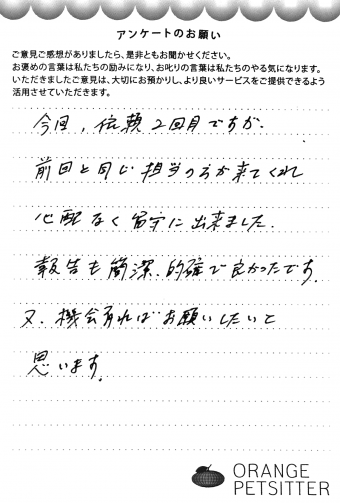 アンケートのお願い
ご意見ご感想がありましたら、是非ともお聞かせください。
お褒めの言葉は私たちの励みになり、お叱りの言葉は私たちのやる気になります。
いただきましたご意見は、大切にお預かりし、より良いサービスをご提供できるよう
活用させていただきます。
今回、依頼2回目ですが、
前回と同じ担当の方が来てくれ
心配なく留守に出来ました。
報告も簡潔、的確で良かったです。
又、機会有ればお願いしたいと
思います。
ORANGE
PETSITTER